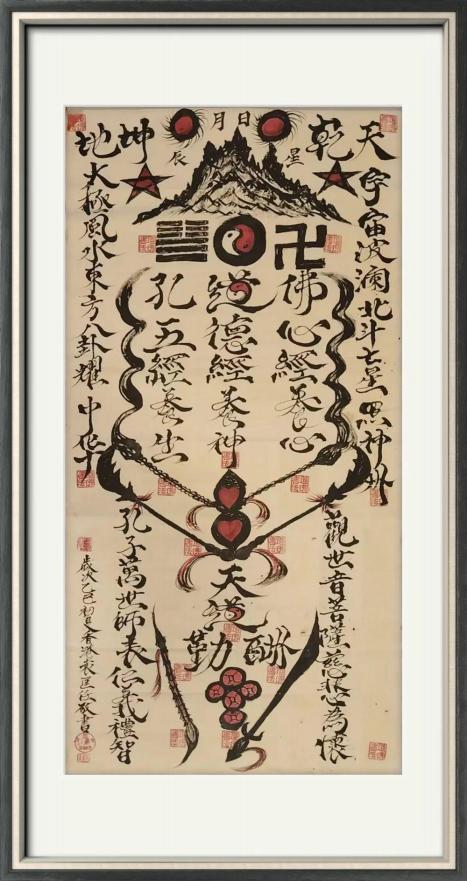 日月
星辰
乾坤
天宇宙波瀾北斗七星神州
地太極風水東方八卦耀中華
卍
佛心經養心
道德經養神
孔五經養生
天道
酬勤
觀世音菩薩慈悲為懷
孔子萬世師表仁義禮智
歲次乙巳初夏香港敬書